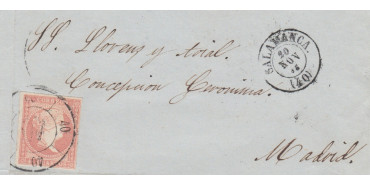 SS. Llovens y trial.
Concepcion Geronima.
Madrid.
SALAMANCA.
20
NOV
(40)
40
40